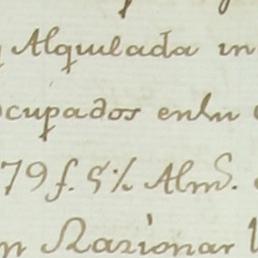 Alquilada in
ocupados enlu
79 f. 5 % Alm.^s
Razionar